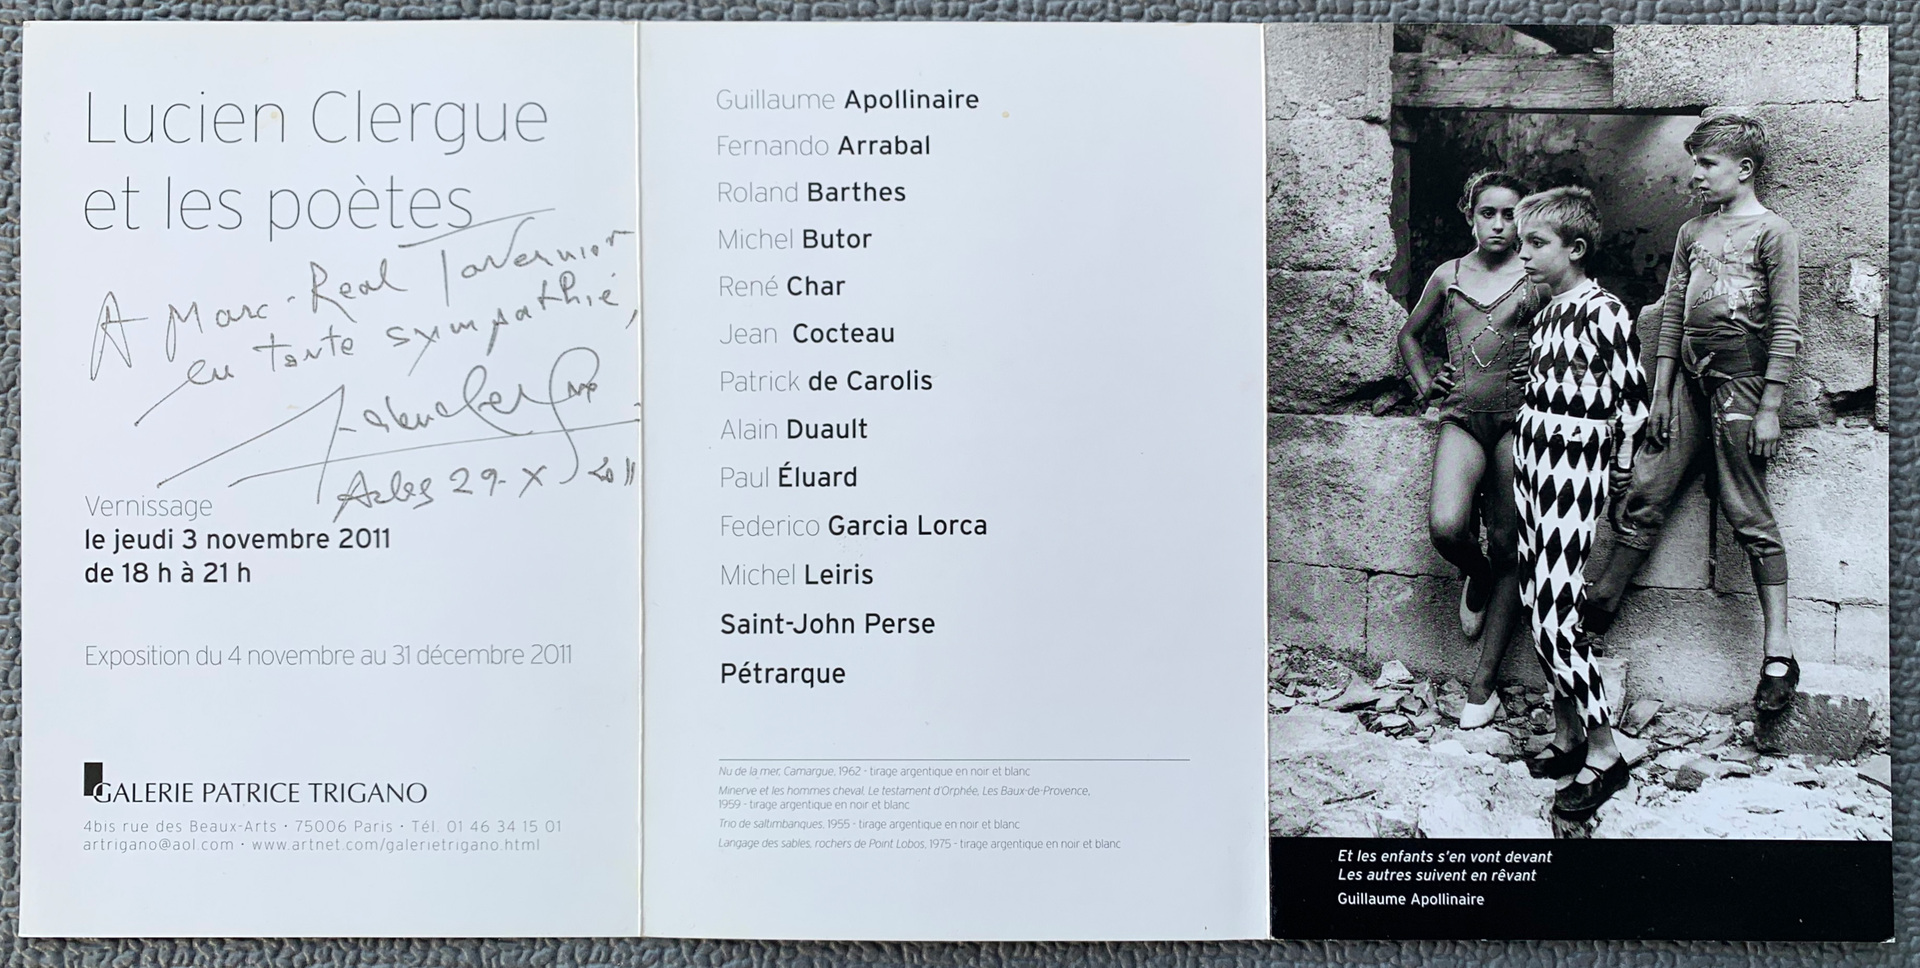 Lucien Clergue
et les poètes
A Marc-Réal Tavernier
en toute sympathie,
Lucien Clergue
Arles 29-X 2011
Vernissage
le jeudi 3 novembre 2011
de 18 h à 21 h
Exposition du 4 novembre au 31 décembre 2011
GALERIE PATRICE TRIGANO
4bis rue des Beaux-Arts • 75006 Paris • Tél. 01 46 34 15 01
artrigano@aol.com • www.artnet.com/galerietrigano.html
Guillaume Apollinaire
Fernando Arrabal
Roland Barthes
Michel Butor
René Char
Jean Cocteau
Patrick de Carolis
Alain Duault
Paul Éluard
Federico Garcia Lorca
Michel Leiris
Saint-John Perse
Pétrarque
Nu de la mer, Camargue, 1962 - tirage argentique en noir et blanc
Minerve et les hommes cheval, Le testament d'Orphée, Les Baux-de-Provence,
1959 - tirage argentique en noir et blanc
Trio de saltimbanques, 1955 - tirage argentique en noir et blanc
Langage des sables, rochers de Point Lobos, 1975 - tirage argentique en noir et blanc
Et les enfants s'en vont devant
Les autres suivent en rêvant
Guillaume Apollinaire